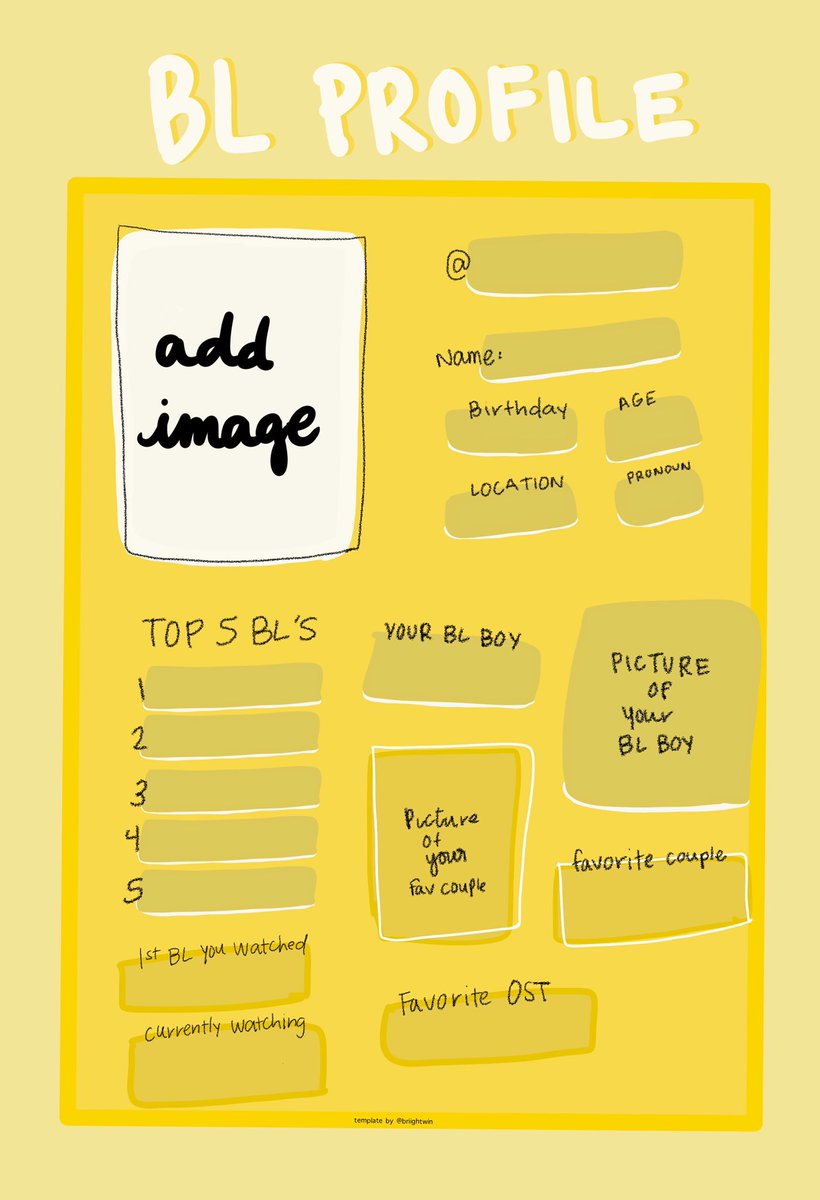 BL PROFILE
add
image
@
Name:
Birthday
AGE
LOCATION
PRONOUN
TOP 5 BL'S
1
2
3
4
5
1st BL you watched
currently watching
YOUR BL BOY
PICTURE
OF
your
BL BOY
Picture
of
your
fav couple
favorite couple
Favorite OST
template by @briightwin